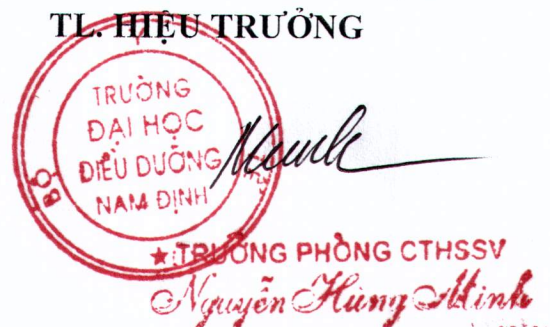 TL. HIỆU TRƯỞNG
TRƯỜNG
ĐẠI HỌC
ĐIỀU DƯỠNG
NAM ĐỊNH
BỘ
★ TRƯỞNG PHÒNG CTHSSV
Nguyễn Hùng Minh